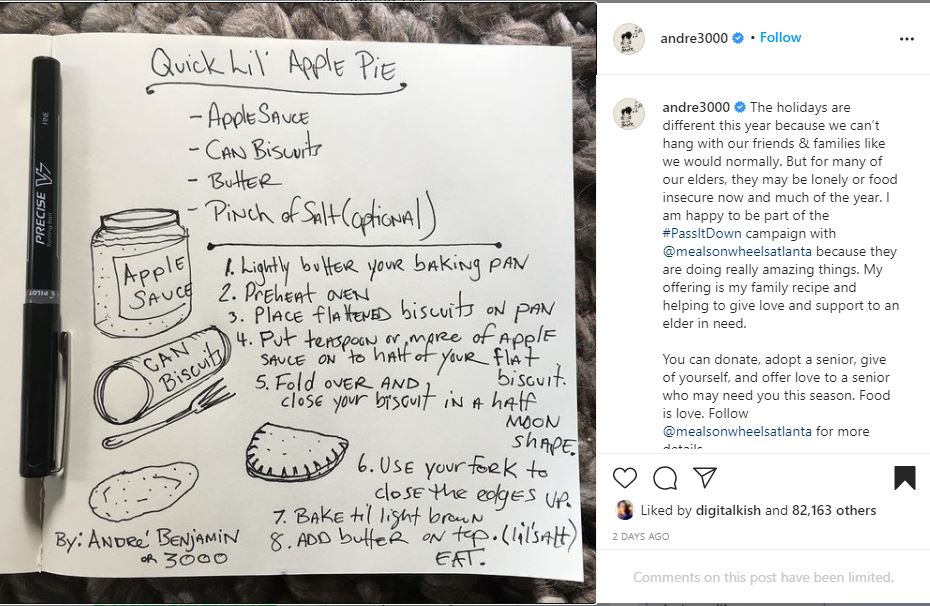 Quick Lil' Apple Pie
- Apple Sauce
- Can Biscuits
- Butter
- Pinch of Salt (optional)
1. Lightly butter your baking pan
2. Preheat oven
3. Place flattened biscuits on pan
4. Put teaspoon or more of apple
sauce on to half of your flat
biscuit.
5. Fold over and
close your biscuit in a half
moon
shape.
6. Use your fork to
close the edges up.
7. Bake til light brown
8. Add butter on top. (lil' salt)
Eat.
Apple
Sauce
Can
Biscuits
By: André Benjamin
or 3000
PRECISE V5
Rolling Ball
FINE
PILOT
andre3000 • Follow
andre3000 The holidays are
different this year because we can't
hang with our friends & families like
we would normally. But for many of
our elders, they may be lonely or food
insecure now and much of the year. I
am happy to be part of the
#PassItDown campaign with
@mealsonwheelsatlanta because they
are doing really amazing things. My
offering is my family recipe and
helping to give love and support to an
elder in need.
You can donate, adopt a senior, give
of yourself, and offer love to a senior
who may need you this season. Food
is love. Follow
@mealsonwheelsatlanta for more
details
Liked by digitalkish and 82,163 others
2 DAYS AGO
Comments on this post have been limited.